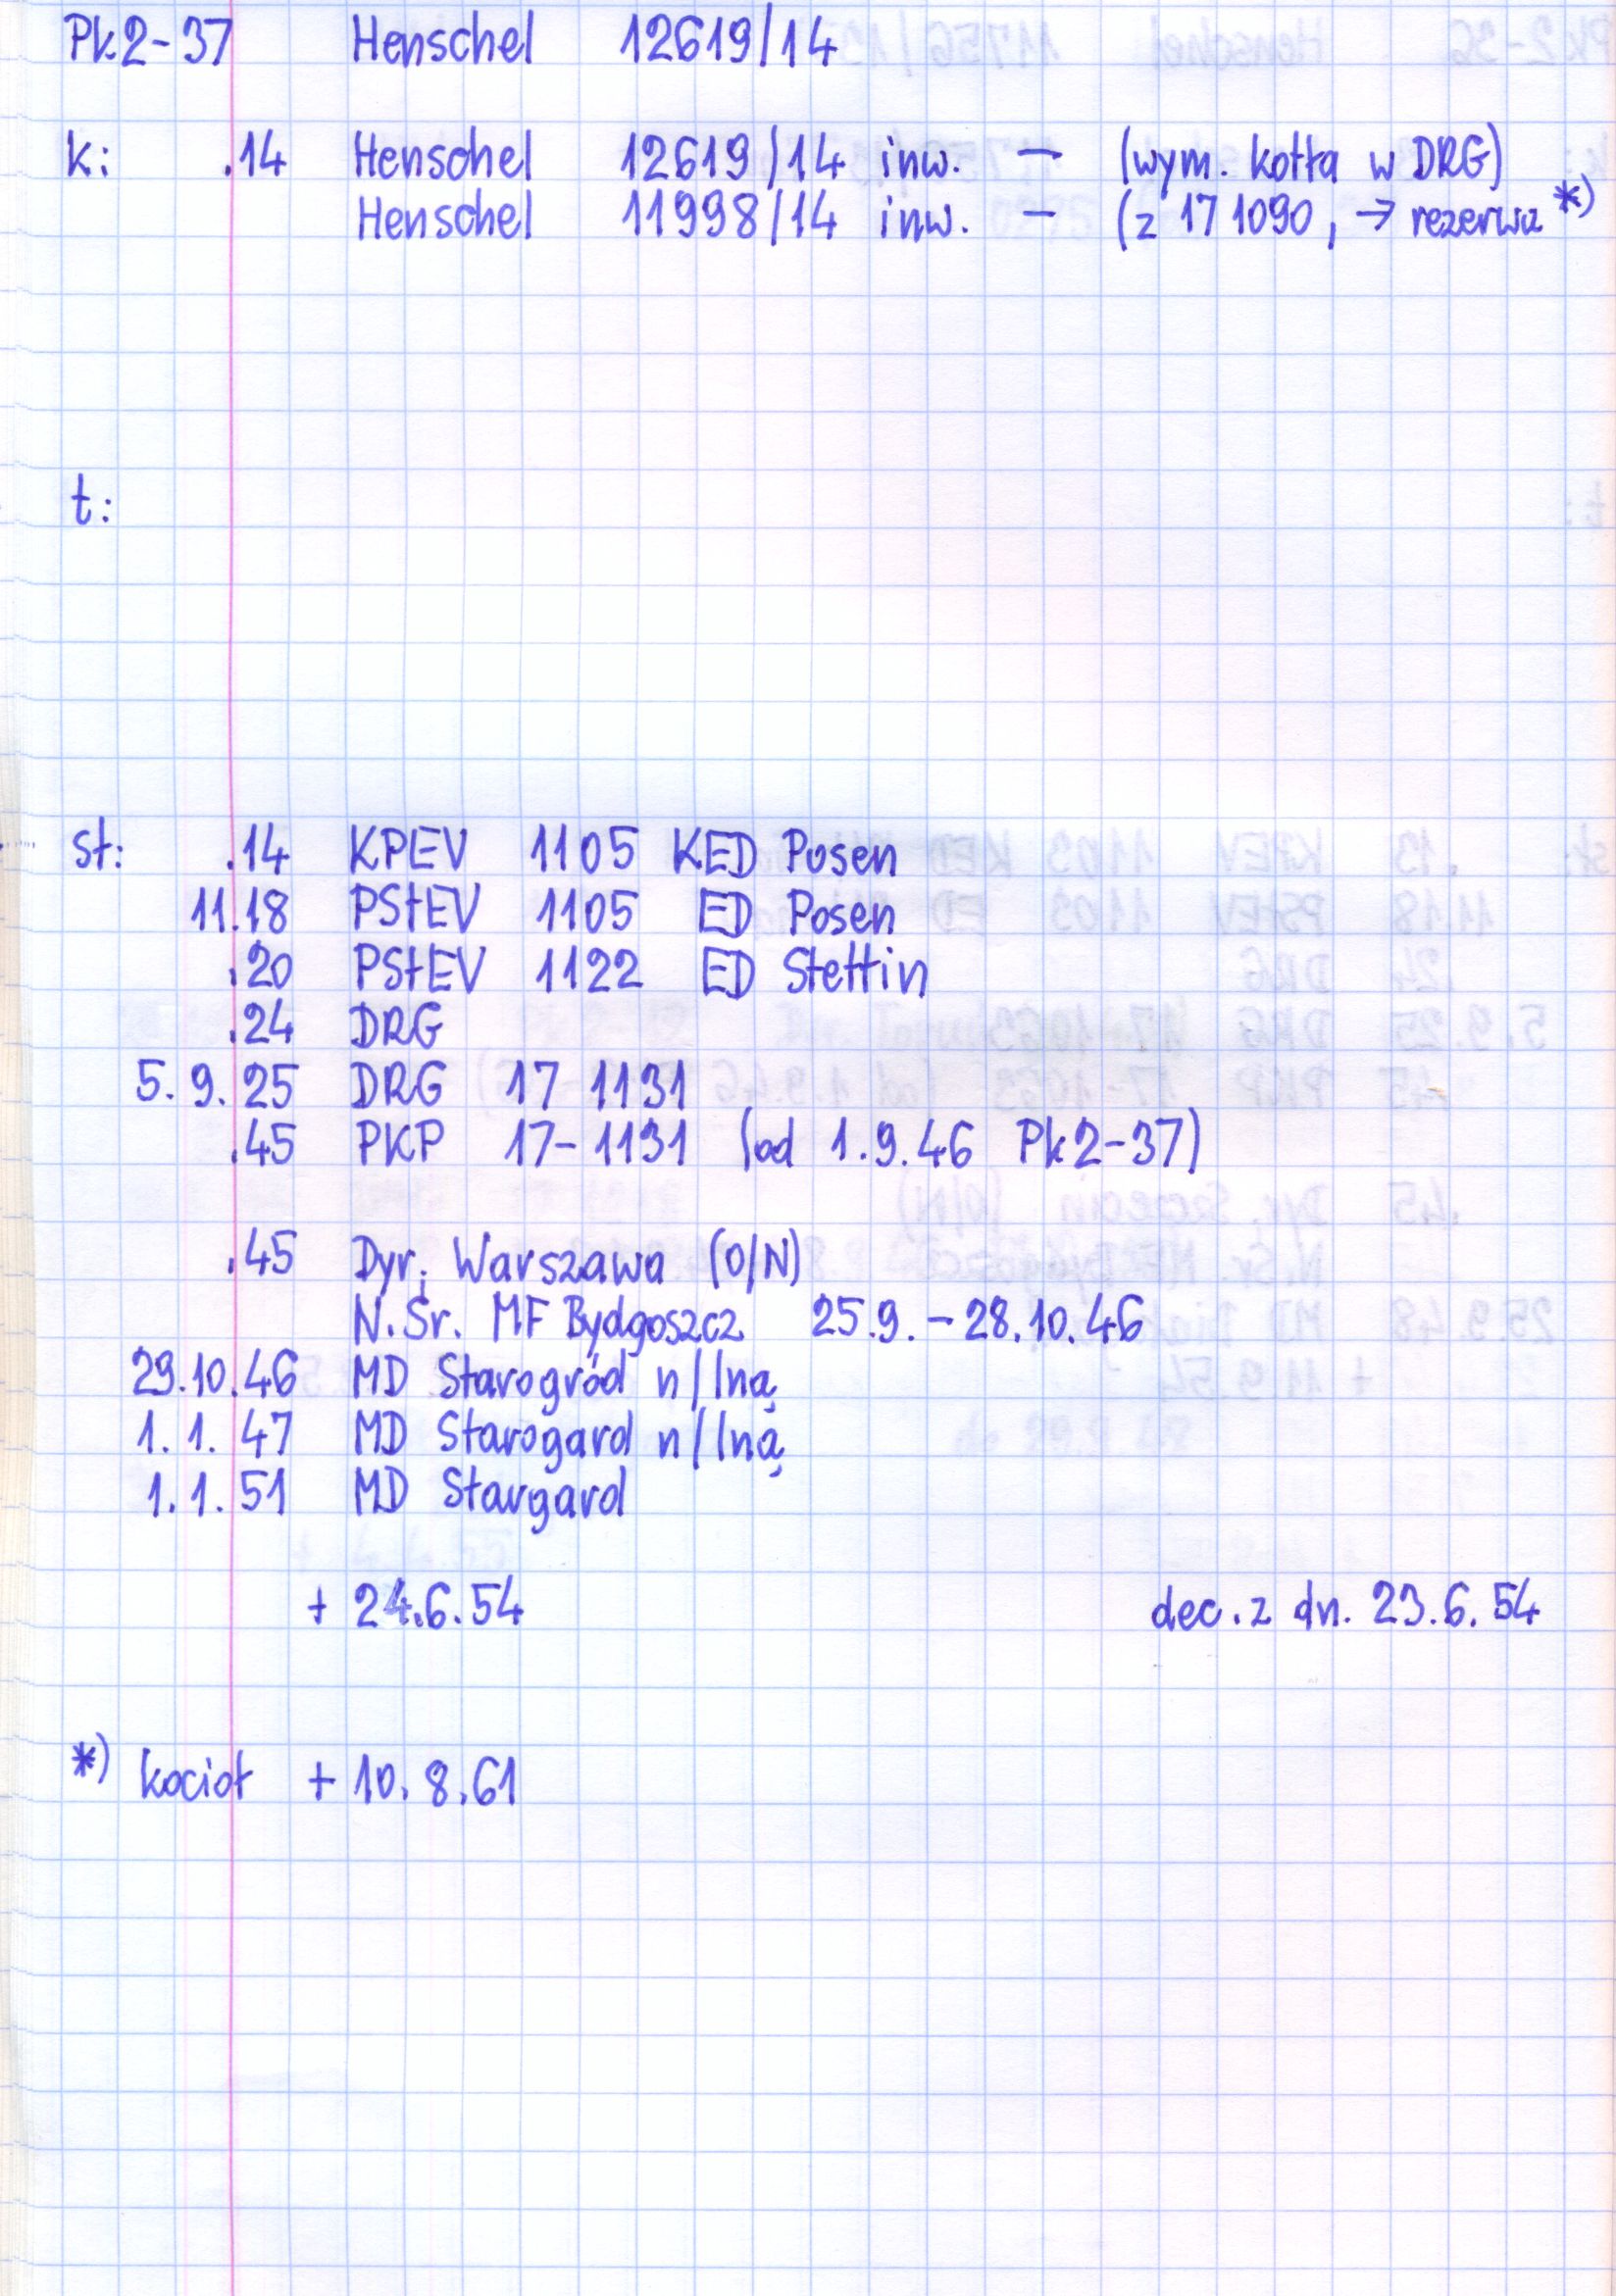 Pk2-37 Henschel 12619/14
k: .14 Henschel 12619/14 inw. — (wym. kotła w DRG)
Henschel 11998/14 inw. — (z 17 1090, → rezerwa *)
t:
st: .14 KPEV 1105 KED Posen
11.18 PStEV 1105 ED Posen
.20 PStEV 1122 ED Stettin
.24 DRG
5.9.25 DRG 17 1131
.45 PKP 17-1131 (od 1.9.46 Pk2-37)
.45 Dyr. Warszawa (O/N)
N.Śr. MF Bydgoszcz 25.9.-28.10.46
29.10.46 MD Starogród n/Iną
1.1.47 MD Starogard n/Iną
1.1.51 MD Stargard
+ 24.6.54 dec. z dn. 23.6.54
*) kocioł + 10.8.61